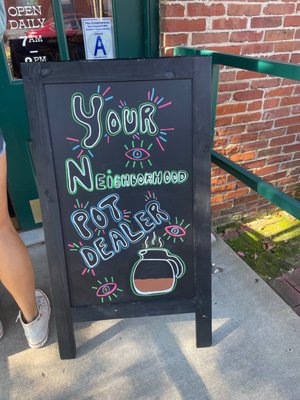 OPEN
DAILY
7AM
A
YOUR
NEiGHBORHOOD
POT
DEALER